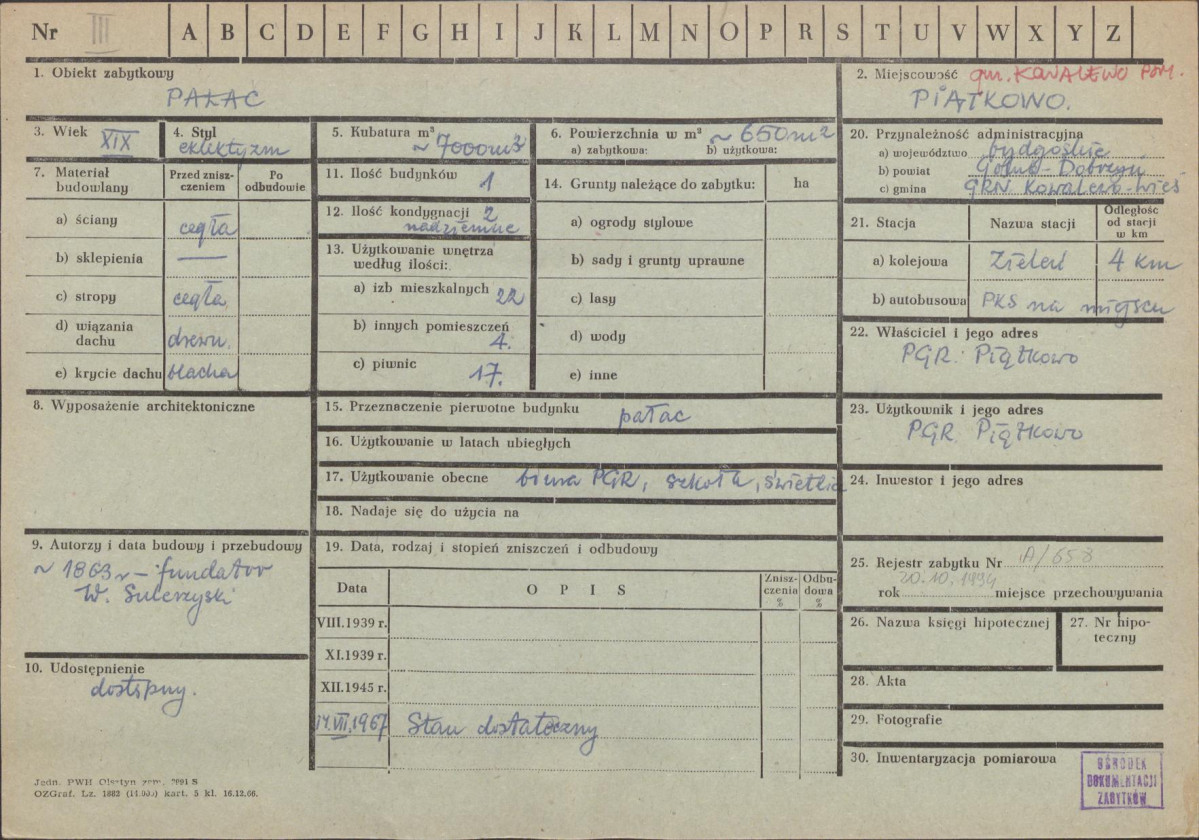 Nr III A B C D E F G H I J K L M N O P R S T U V W X Y Z
1. Obiekt zabytkowy
PAŁAC
2. Miejscowość gm. KOWALEWO POM.
PIĄTKOWO.
3. Wiek XIX
4. Styl
eklektyzm
5. Kubatura m³
~ 7000 m³
6. Powierzchnia w m² ~ 650 m²
a) zabytkowa: b) użytkowa:
7. Materiał budowlany
Przed zniszczeniem
Po odbudowie
a) ściany cegła
b) sklepienia —
c) stropy cegła
d) wiązania dachu drewn.
e) krycie dachu blacha
8. Wyposażenie architektoniczne
9. Autorzy i data budowy i przebudowy
~ 1863 r – fundator
W. Sulerzyski
10. Udostępnienie
dostępny.
11. Ilość budynków 1
12. Ilość kondygnacji 2
nadziemne
13. Użytkowanie wnętrza
według ilości:
a) izb mieszkalnych 22
b) innych pomieszczeń
4.
c) piwnic 17.
14. Grunty należące do zabytku: ha
a) ogrody stylowe
b) sady i grunty uprawne
c) lasy
d) wody
e) inne
15. Przeznaczenie pierwotne budynku pałac
16. Użytkowanie w latach ubiegłych
17. Użytkowanie obecne biura PGR, szkoła, świetlica
18. Nadaje się do użycia na
19. Data, rodzaj i stopień zniszczeń i odbudowy
Data O P I S Zniszczenia % Odbudowa %
VIII.1939 r.
XI.1939 r.
XII.1945 r.
14.VII.1967 Stan dostateczny
20. Przynależność administracyjna
a) województwo bydgoskie
b) powiat Golub-Dobrzyń
c) gmina GRN Kowalewo-Wieś
21. Stacja Nazwa stacji Odległość od stacji w km
a) kolejowa Zieleń 4 km
b) autobusowa PKS na miejscu
22. Właściciel i jego adres
PGR. Piątkowo
23. Użytkownik i jego adres
PGR. Piątkowo
24. Inwestor i jego adres
25. Rejestr zabytku Nr A/658
20.10.1994
rok miejsce przechowywania
26. Nazwa księgi hipotecznej
27. Nr hipoteczny
28. Akta
29. Fotografie
30. Inwentaryzacja pomiarowa
OŚRODEK
DOKUMENTACJI
ZABYTKÓW
Jedn. PWH Olsztyn zam. S
OZGraf. Lz. 1882 kart. 5 kl. 16.12.66.